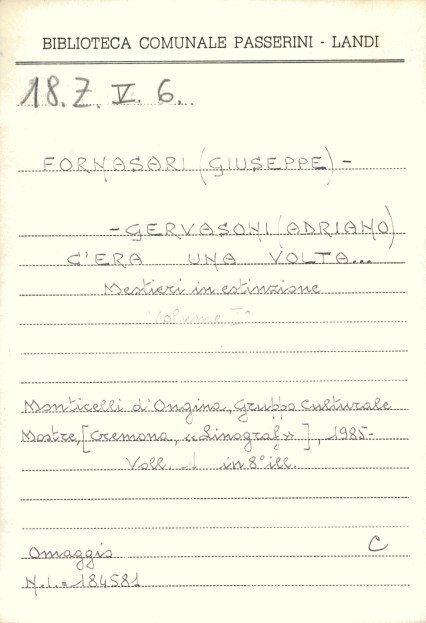 BIBLIOTECA COMUNALE PASSERINI - LANDI
18.Z. V. 6.
FORNASARI (GIUSEPPE) -
- GERVASONI (ADRIANO)
C'ERA UNA VOLTA...
Mestieri in estinzione
Volume I°
Monticelli d'Ongina, Gruppo Culturale
Mostre, [Cremona, «Linograf»], 1985-
Voll. 1 in 8° ill.
Omaggio C
N.i.= 184581